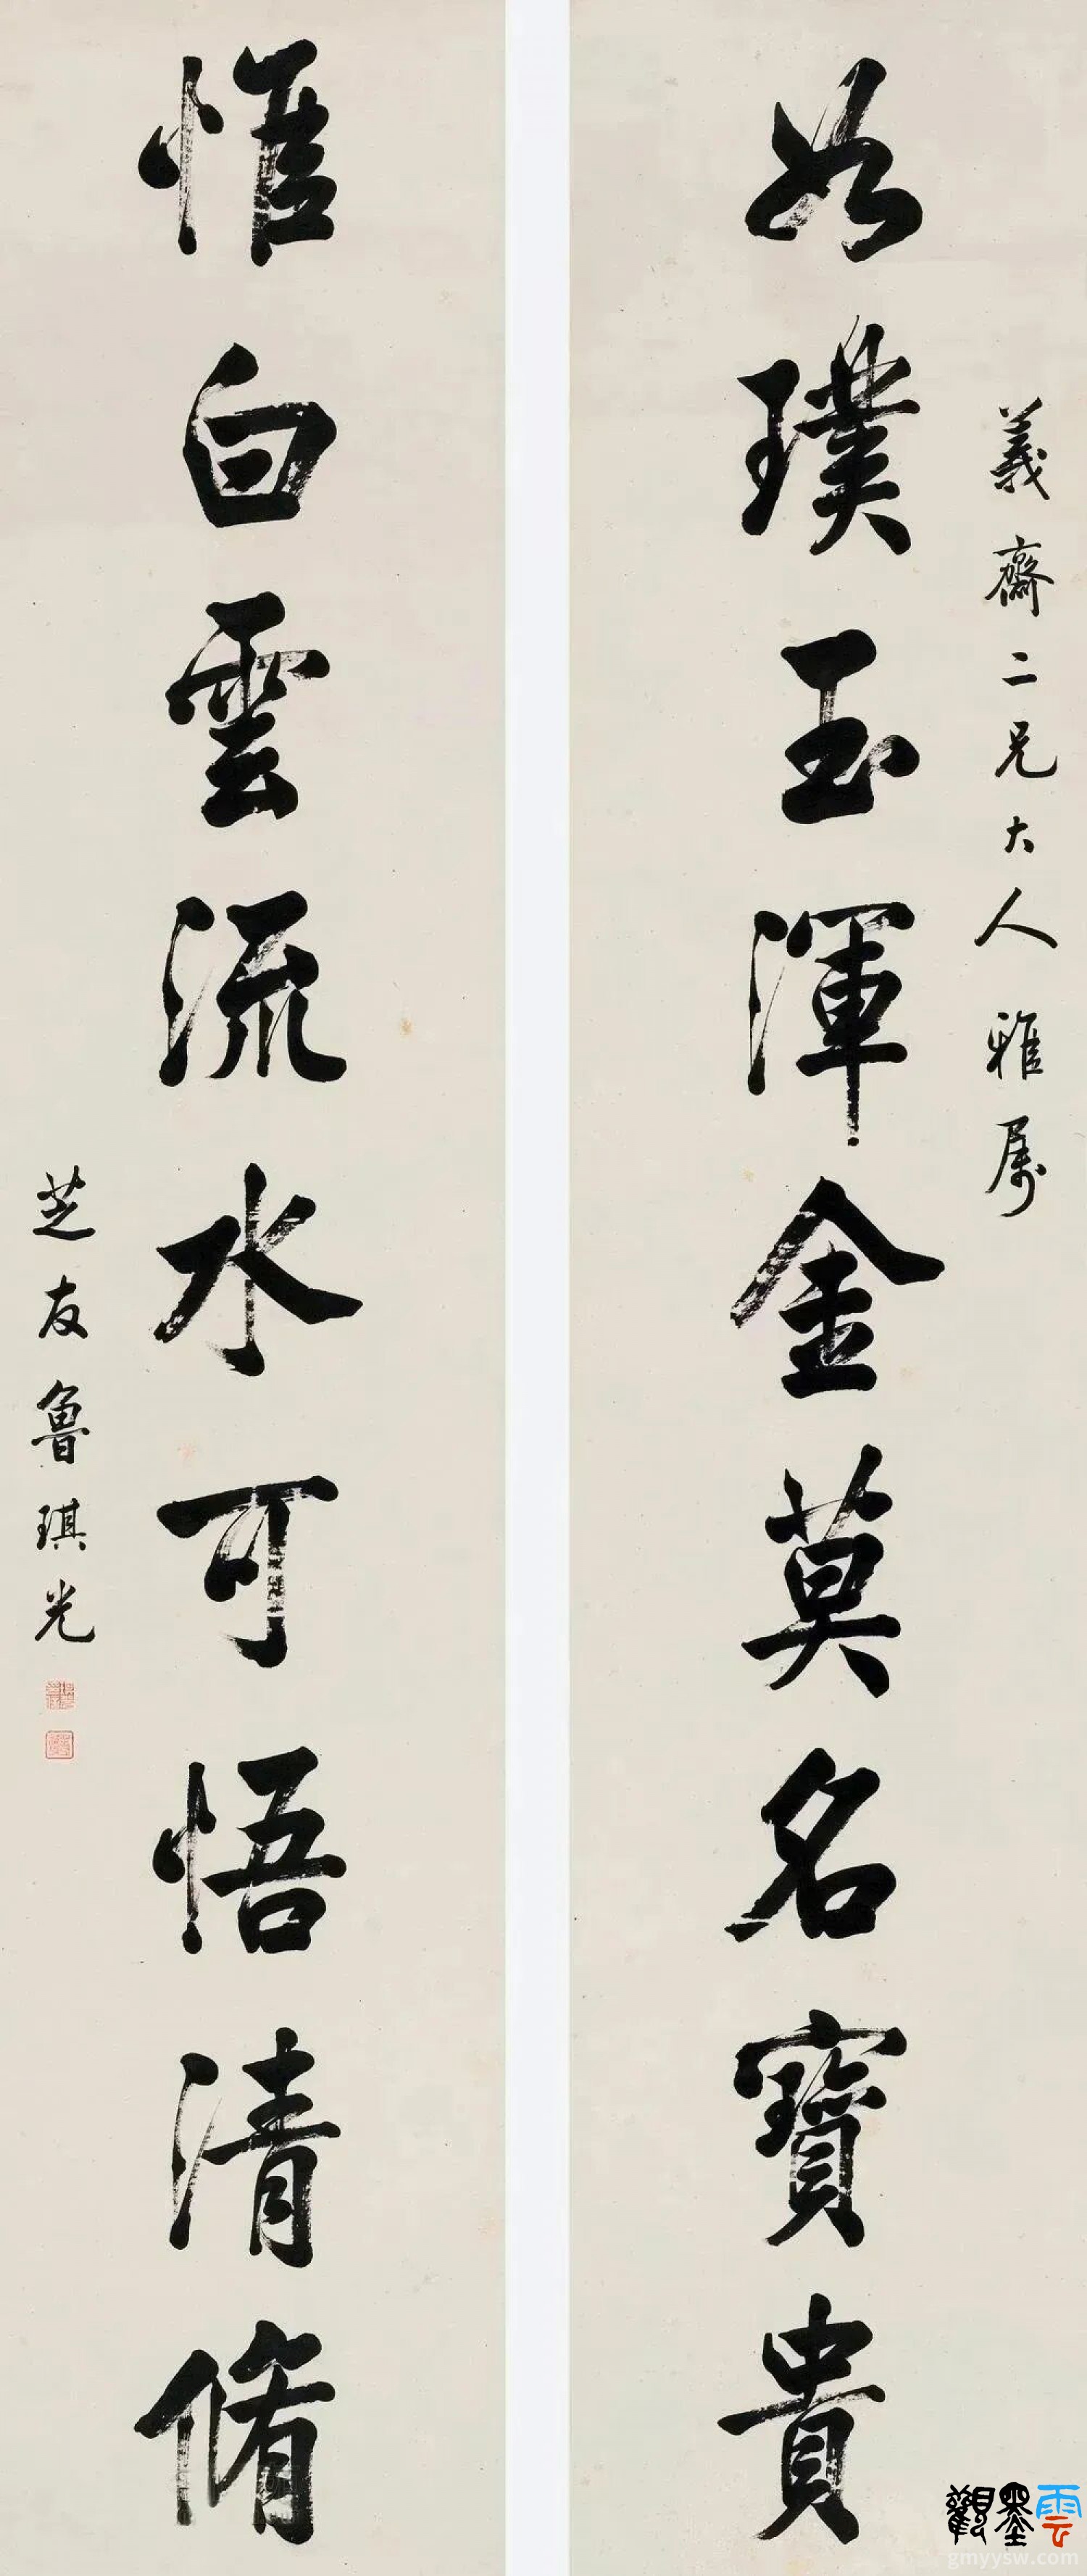 義齋二兄大人雅属
如璞玉渾金莫名寶貴
惟白雲流水可悟清脩
芝友魯琪光
觀墨雲
gmyysw.com